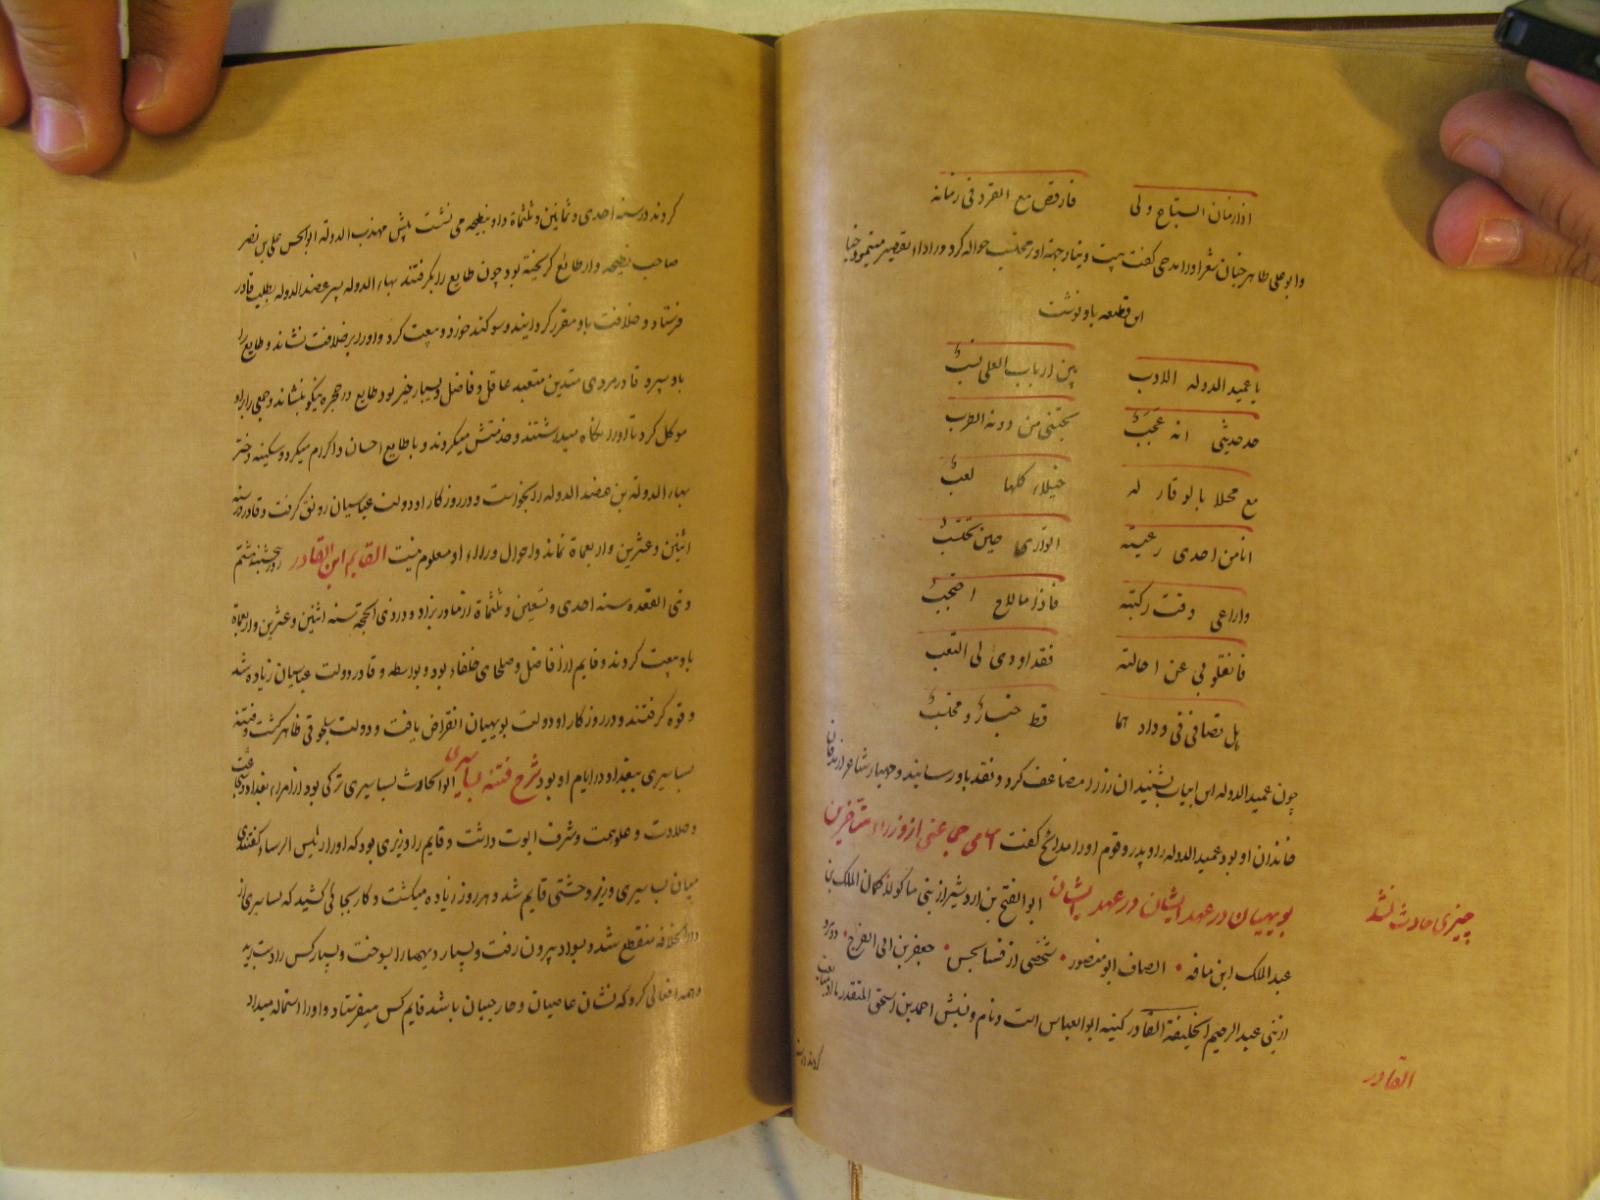 اذا زمان السباع ولی فارقص مع القرد فی زمانه
وابوعلی طاهر جنان شعر اورا مدحی کفت بیت دینار جهة او محلتیب حواله کرد و در اداء تقصیر مینمود
این قطعه باو نوشت
یا عمید الدوله الادب بین ارباب العلی نسب
حدیثی انه عجب یجتنی من دونه الطرب
مع محلا بالوقار له خیلاء کلها لعب
انا من احدی رعیته الوازی حین تحتب
واراعی وقت رکبته فاذا ما لاح احتجب
فانقلونی عن احالته فقد اودی لی التعب
هل تصافی فی وداد هما قط خباز و محتسب
چون عمید الدوله این ابیات بشنید ان زر را مضاعف کرد و نقد باو رسانید و مهیار شاعر از
خاندان او بود عمید الدوله را و پدر و قوم اورا مدایح کفت اسامی جماعتی از وزراء متاخرین
بویهیان در عهد ایشان در عهد ایشان ابوالفتح بن اردشیر از بنی ماکولا کمال الملک بن
چیزی حادث نشد
عبدالملک ابن مافه الصاف ابومنصور شخصی از فسابجس جعفر بن ابی الفرج وزیر
از بنی عبدالرحیم الخلیفة القادر کنیه ابوالعباس است و نام و نسبش احمد بن اسحق المقتدر
القادر
کردند در سنه
کردند در سنه احدی و ثمانین و ثلثمأة و او ببطیحه می نشست پیش مهذب الدوله ابوالحسن علی بن نصر
صاحب بطیحه و از طایع کریخته بود چون طایع را بکرفتند بهاء الدوله پسر عضدالدوله بطلب قادر
فرستاد و خلافت باو مقرر کردانیند و سوکند خورد و بیعت کرد و اورا بر خلافت نشاند و طایع را
باو سپرد قادر مردی متدین متعبد عاقل و فاضل و بسیار خیر بود طایع در حجره نیکو بنشاند و جمعی را برو
موکل کرد تا اورا نکاه میداشتند و خدمتش میکردند و با طایع احسان و اکرام میکرد و سکینه دختر
بهاء الدوله بن عضد الدوله را بخواست و در روزکار او دولت عباسیان رونق کرفت و قادر در سنه
اثنین و عشرین و اربعمأة نماند و احوال وزراء او معلوم نیست القایم ابن القادر روز پنجشنبه هشتم
ذی القعده سنه احدی و تسعین و ثلثمأة از مادر بزاد و در ذی الحجة سنه اثنین و عشرین و اربعمأة
باو بیعت کردند و قایم از افاضل و صلحای خلفاء بود و بواسطه و قادر دولت عباسیان زیاده شد
و قوه کرفتند و در روزکار او دولت بویهیان انقراض یافت و دولت سلجوقی ظاهر کشت و فتنه
بساسیری ببغداد در ایام او بود شرح فتنه بساسیری ابوالحارث بساسیری ترکی بود از امراء بغداد و شجاعت
و جلادت و علو همت و شرف ابوت داشت و قایم را وزیری بود که اورا رئیس الرساء کفتندی
میان بساسیری و وزیر وحشتی قایم شد و هر روز زیاده میکشت و کار بجائی کشید که بساسیری از
دار الخلافه منقطع شد و بسواد بیرون رفت و بسیار دیهها را بسوخت و بسیار کس را دست برید
و همه افعالی کرد که نشان عاصیان و خارجیان باشد قایم کس میفرستاد و اورا استماله میداد